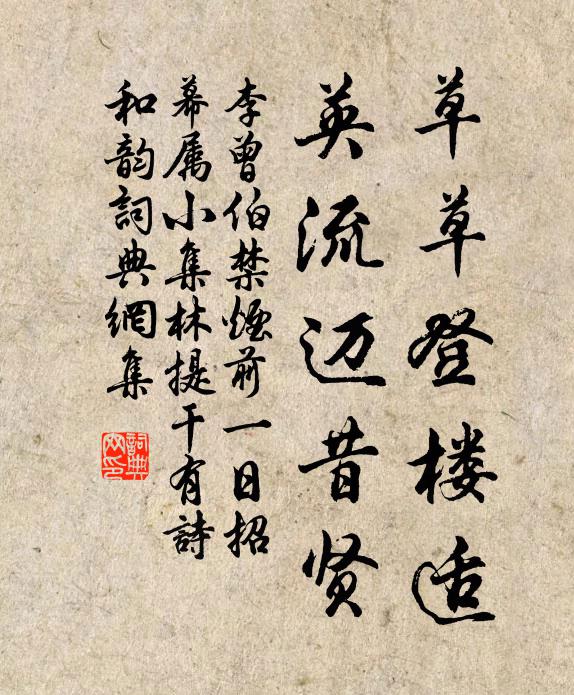 草草登楼适
英流迈昔贤
李曾伯禁烟前一日招
幕属小集林提干有詩
和韵詞典網集
詞典網印